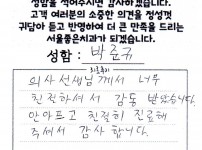 성함을 적어주시면 감사하겠습니다.
고객 여러분의 소중한 의견을 정성껏
귀담아 듣고 반영하여 더 큰 만족을 드리는
서울좋은치과가 되겠습니다.
성함 : 박준규
의사선생님께서 너무
친절하셔서 감동 받았습니다.
안아프고 친절히 진료해
주셔서 감사합니다.